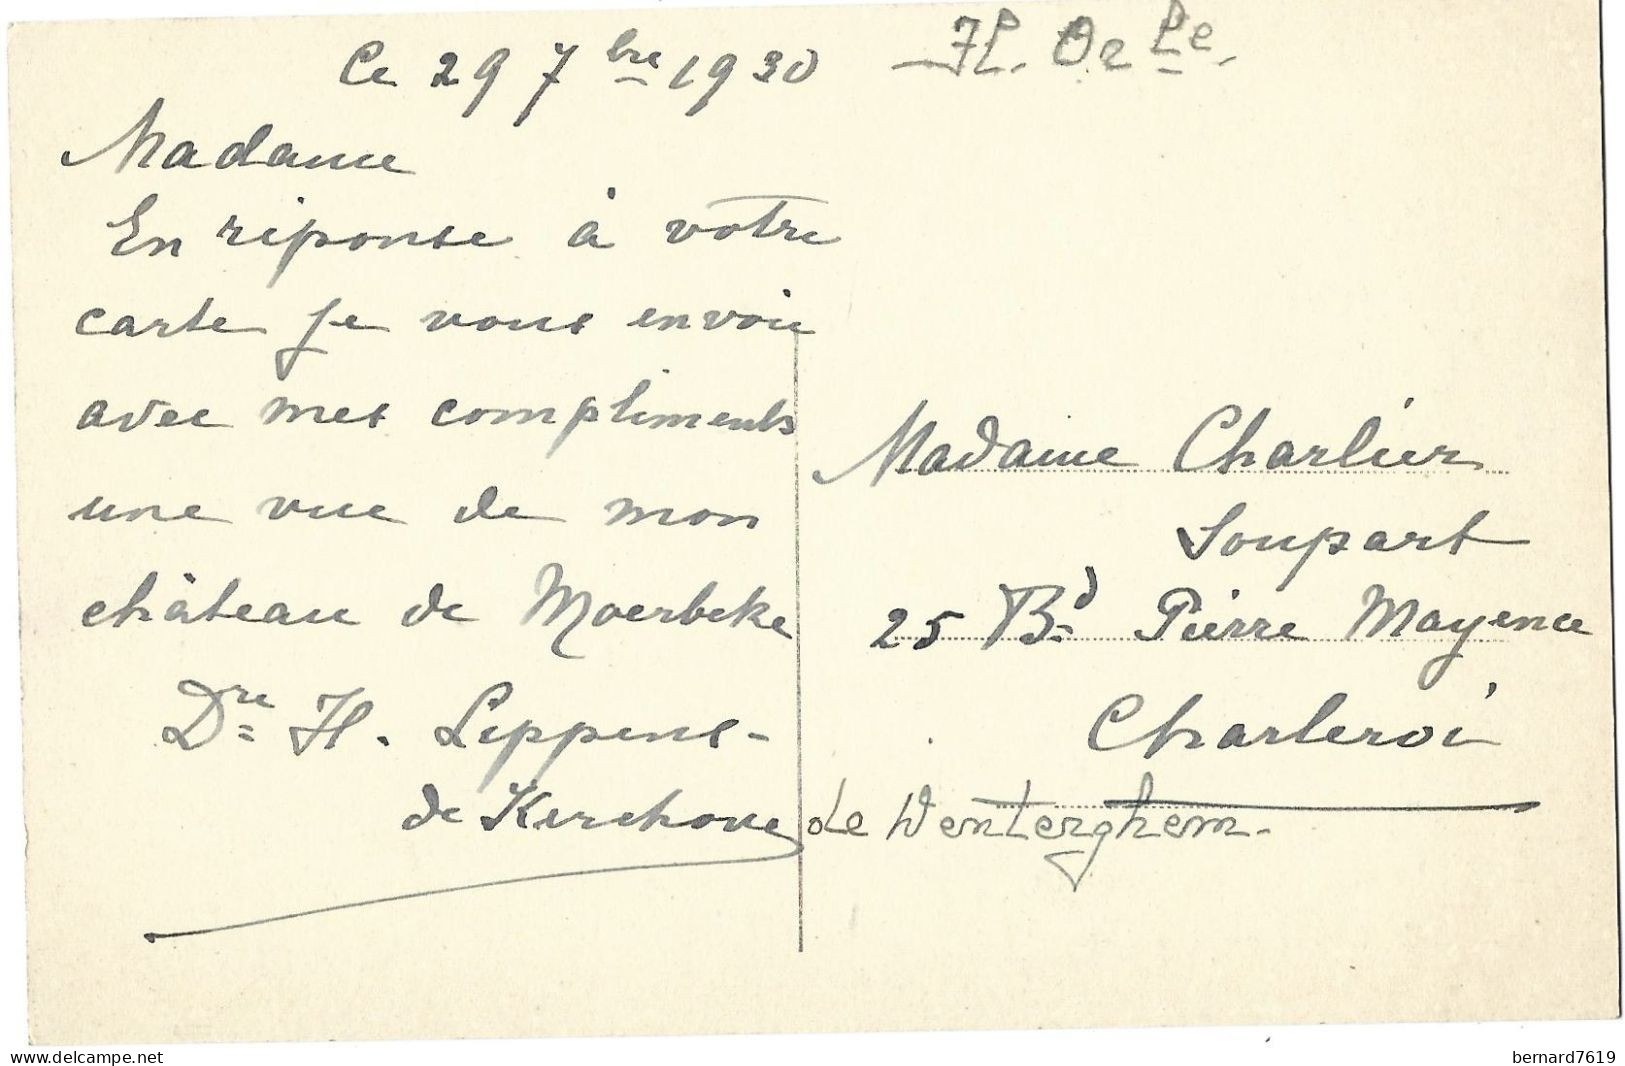 Ce 29 7bre 1930
Fl. Or le.
Madame
En réponse à votre
carte je vous envoie
avec mes compliments
une vue de mon
château de Moerbeke
Dre H. Lippens-
de Kerchove
Madame Charlier
Soupart
25 Bd Pierre Mayence
Charleroi
de Denterghem.
delcampe.net
bernard7619